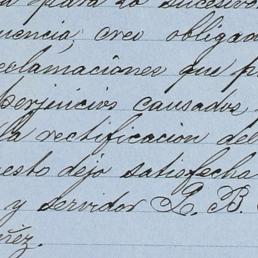 para lo sucesivo
cree obligado
reclamaciones que p
perjuicios causados
la rectificacion del
esto dejo satisfecha
y servidor Q. B.
ñez.